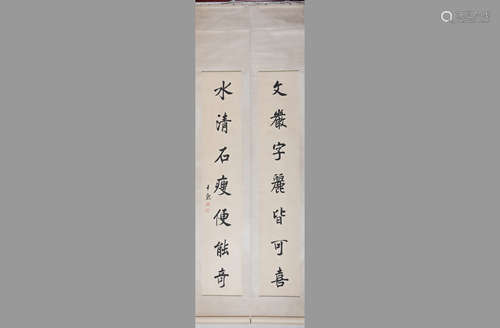 文嚴字麗皆可喜
水清石瘦便能奇